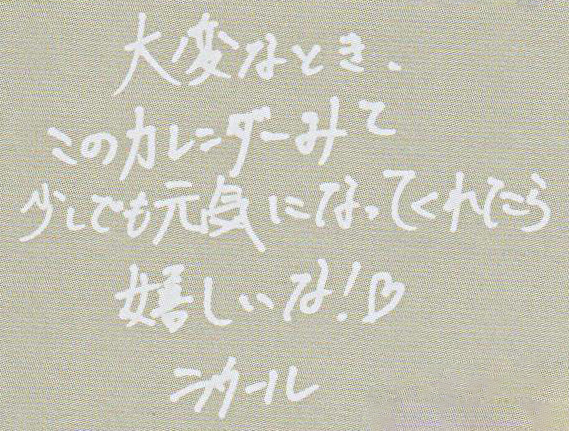 大変なとき、
このカレンダーみて
少しでも元気になってくれたら
嬉しいな！♡
ラウール